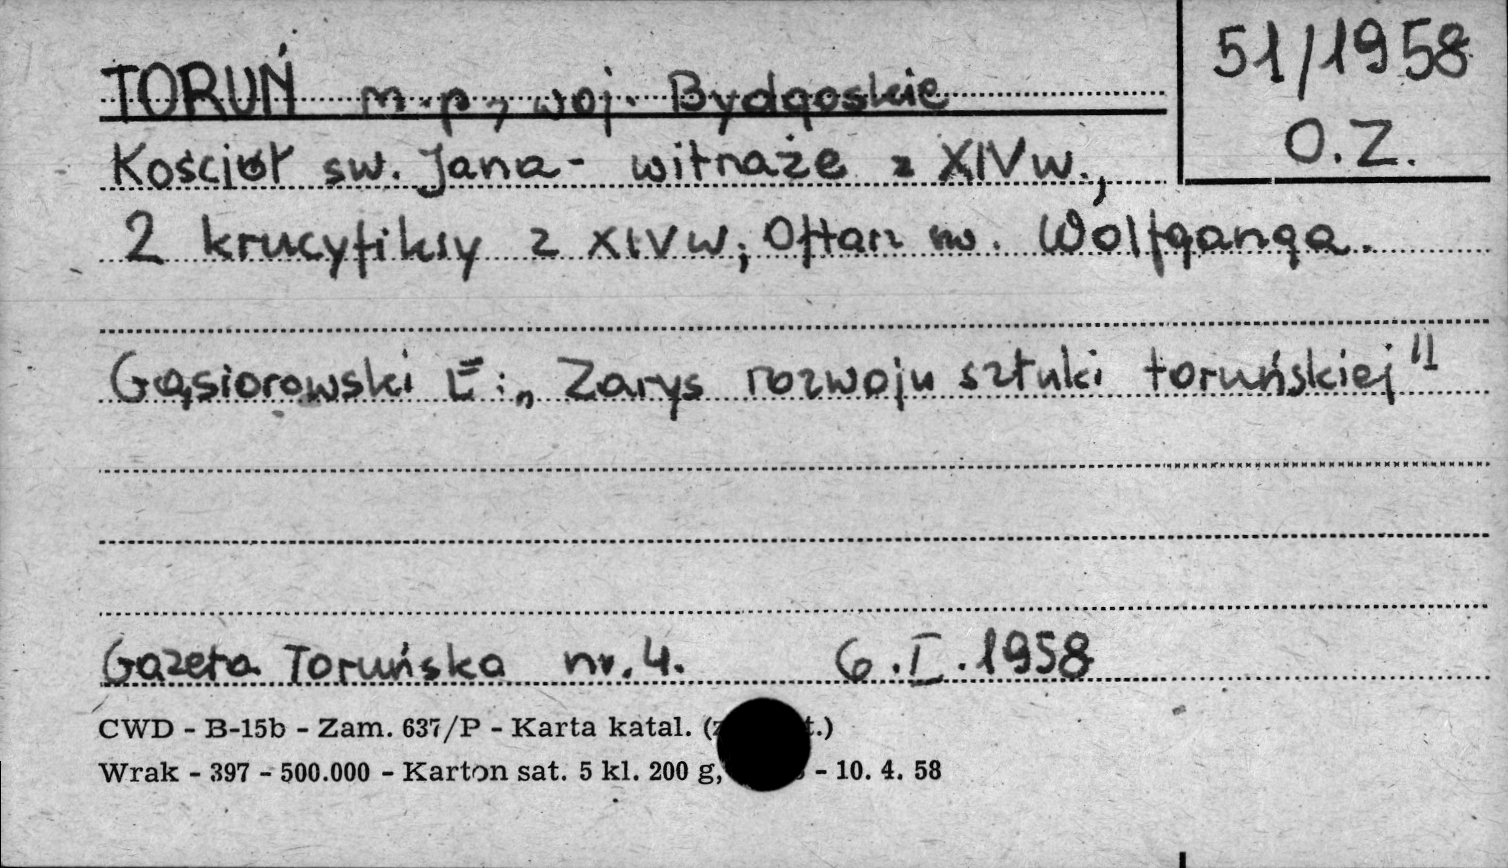 TORUŃ m.p., woj. Bydgoskie
51/1958
O.Z.
Kościół sw. Jana - witraże z XIV w.,
2 krucyfiksy z XIV w; Ołtarz św. Wolfganga.
Gąsiorowski E: „Zarys rozwoju sztuki toruńskiej"
Gazeta Toruńska nr. 4. 6.I.1958
CWD - B-15b - Zam. 637/P - Karta katal. ( t.)
Wrak - 397 - 500.000 - Karton sat. 5 kl. 200 g, - 10. 4. 58